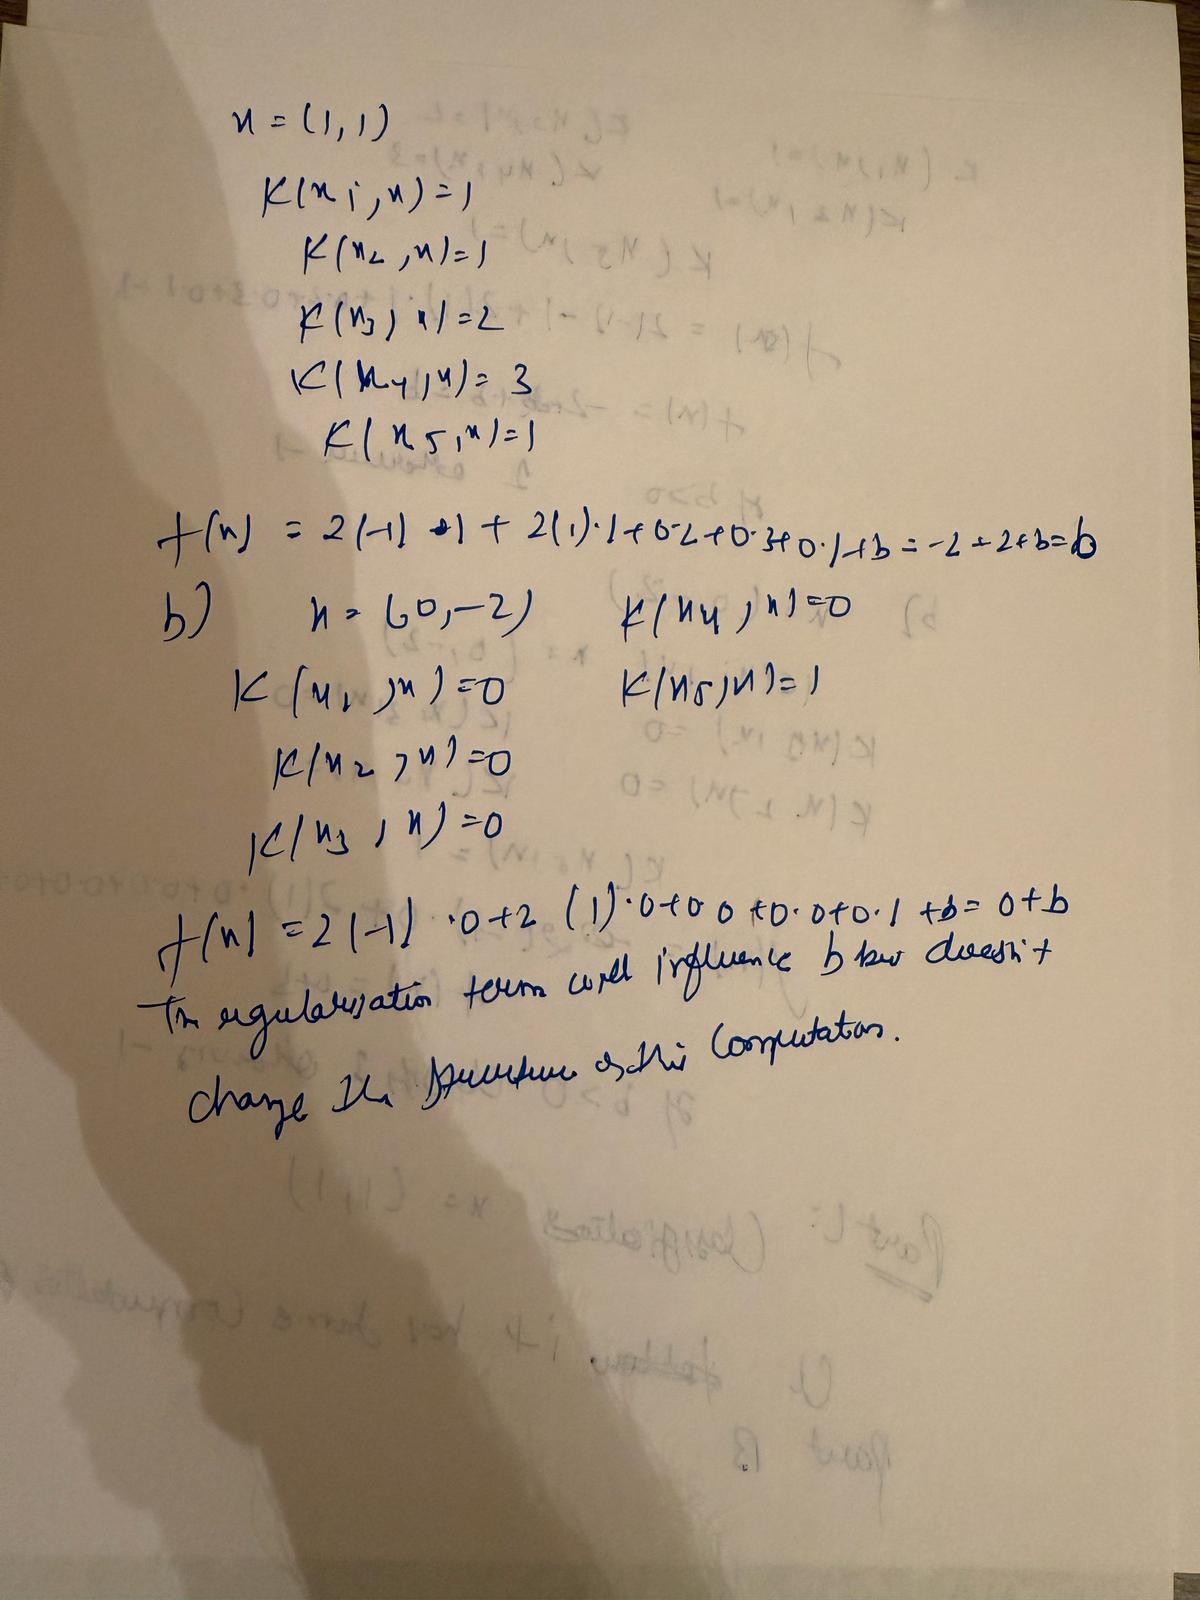 x = (1, 1)
K(x1, x) = 1
K(x2, x) = 1
K(x3, x) = 2
K(x4, x) = 3
K(x5, x) = 1
f(x) = 2(-1) ·1 + 2(1)·1 + 0·2 + 0·3 + 0·1 + b = -2 + 2 + b = b
b) x = (0, -2) K(x4, x) = 0
K(x1, x) = 0 K(x5, x) = 1
K(x2, x) = 0
K(x3, x) = 0
f(x) = 2(-1) ·0 + 2 (1)·0 + 0·0 + 0·0 + 0·1 + b = 0 + b
The regularisation term will influence b but doesn't
change the structure of this computation.